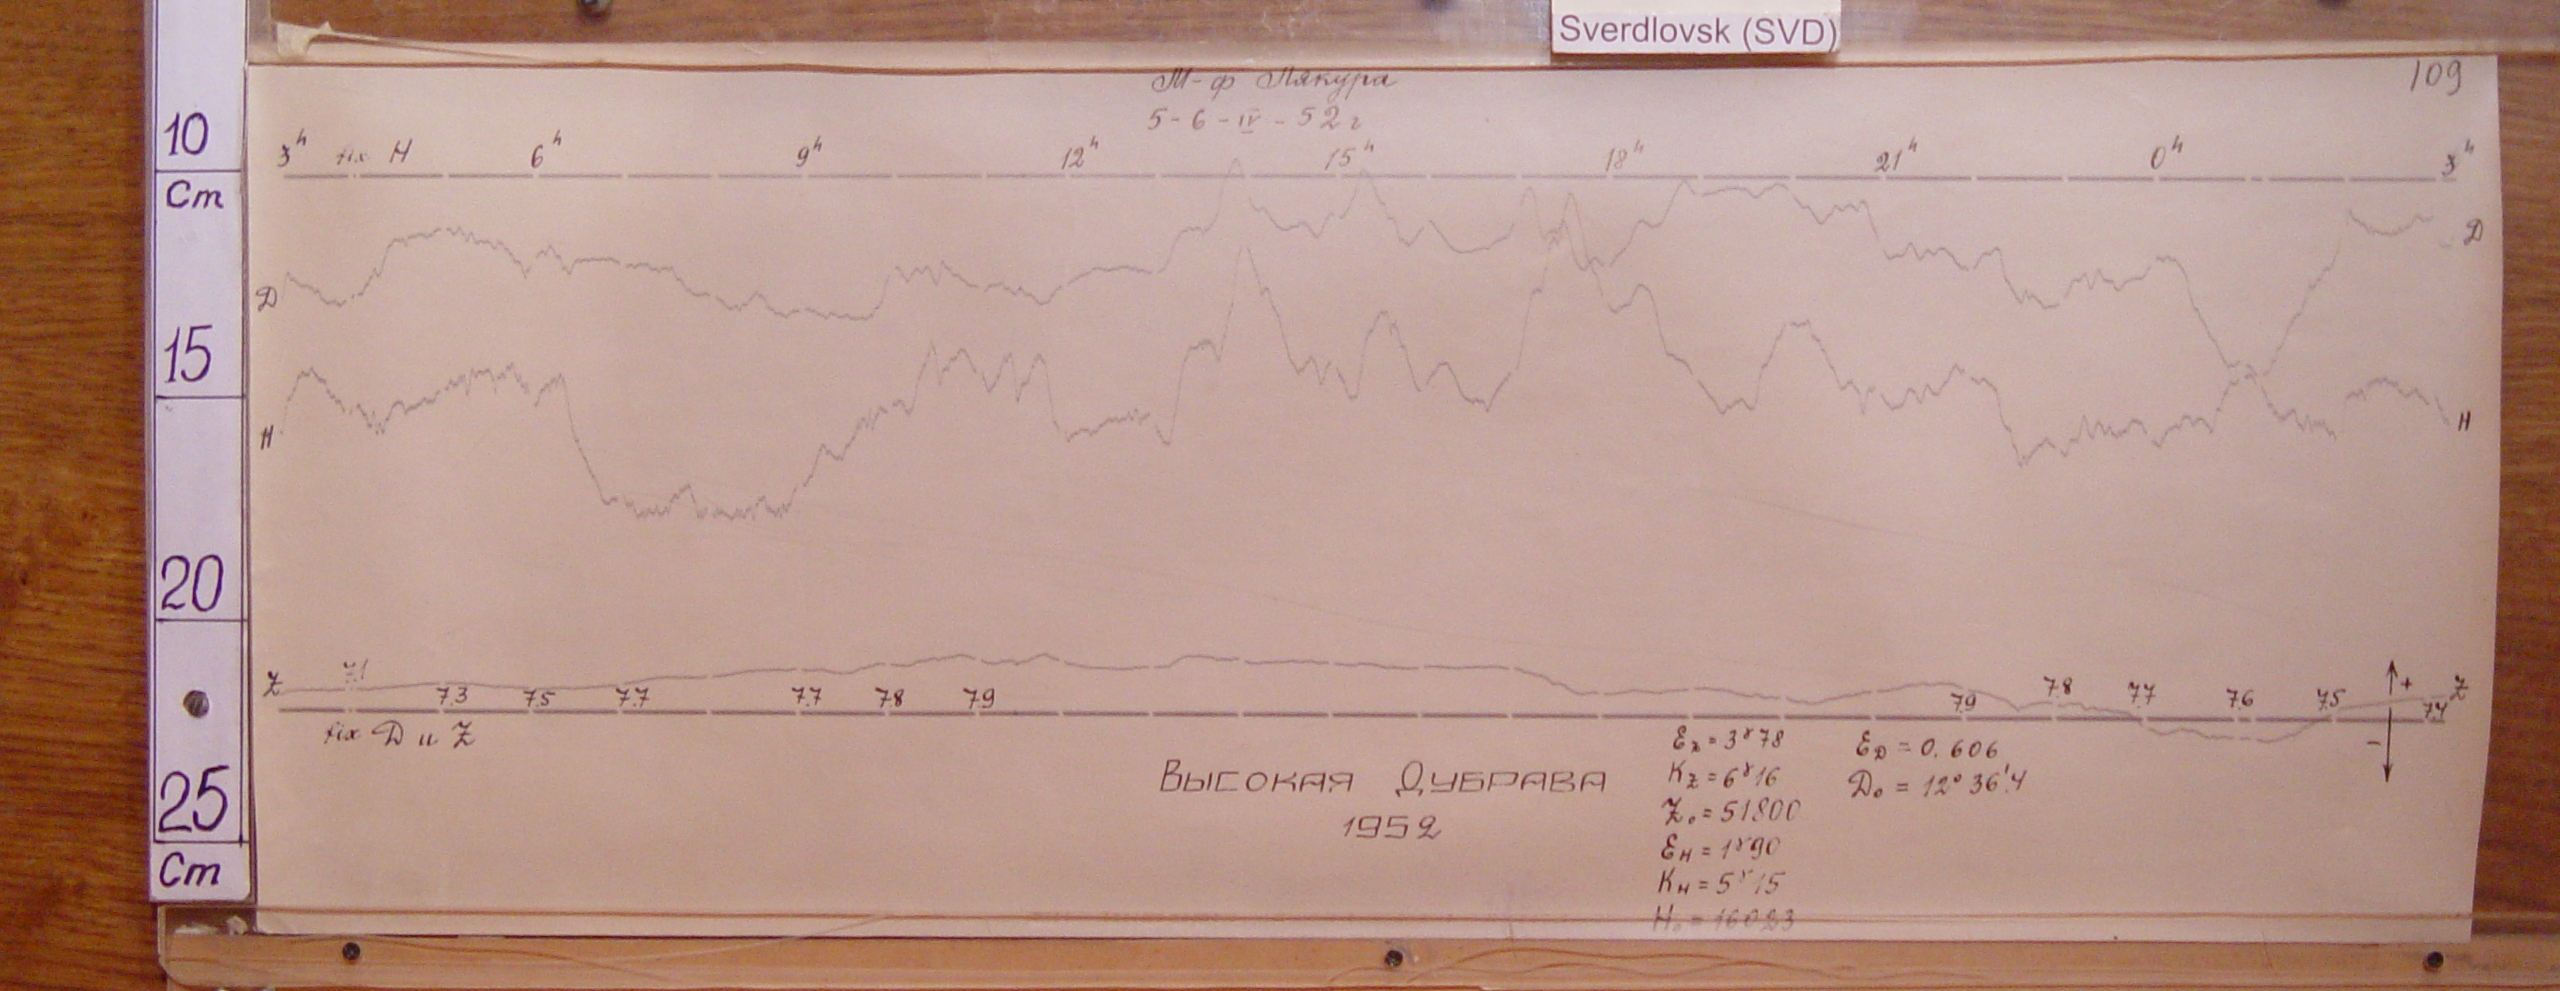 Sverdlovsk (SVD)
10
Cm
15
20
25
Cm
109
М-ф Лякура
5-6-IV-52 г
3ʰ fix H 6ʰ 9ʰ 12ʰ 15ʰ 18ʰ 21ʰ 0ʰ 3ʰ
D D
H H
Z 7.3 7.5 7.7 7.7 7.8 7.9 7.9 7.8 7.7 7.6 7.5 7.4 Z
+
-
fix D и Z
ВЫСОКАЯ ДУБРАВА
1952
Ez = 3ᵞ78
Kz = 6ᵞ16
Z₀ = 51800
Eн = 1ᵞ90
Kн = 5ᵞ15
H₀ = 16023
ED = 0.606
D₀ = 12° 36'.4